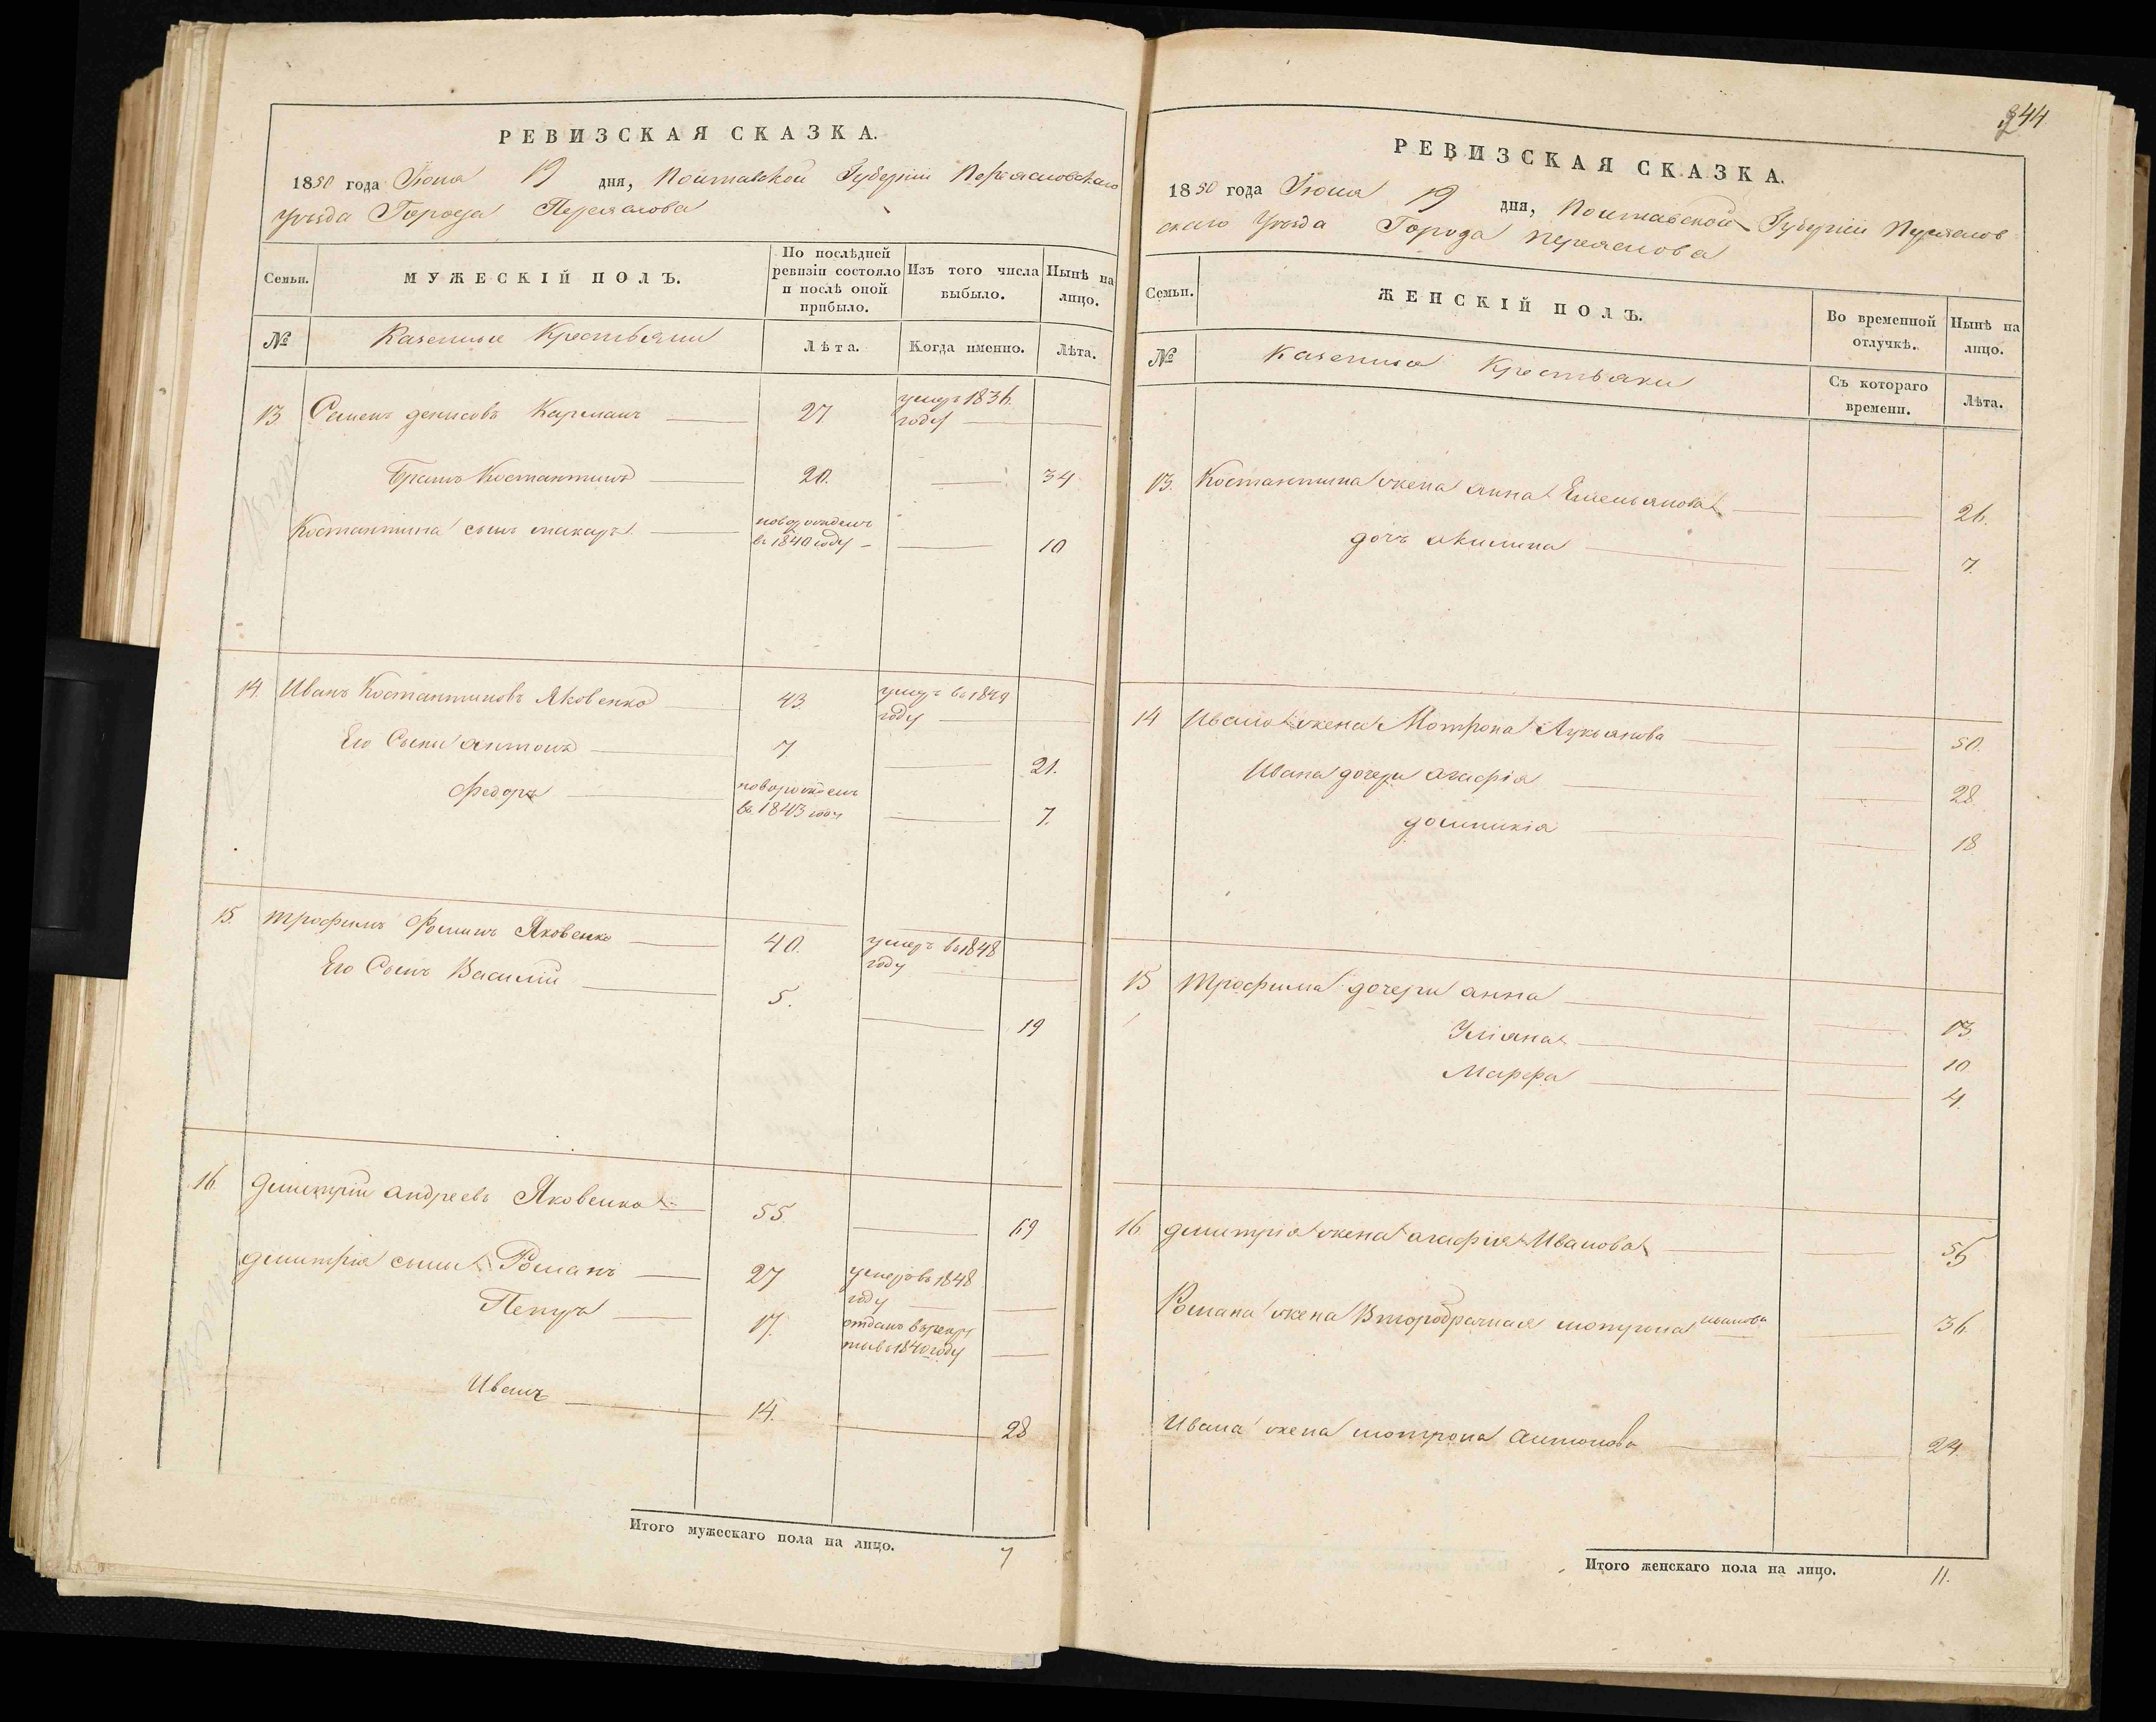 РЕВИЗСКАЯ СКАЗКА.
1850 года Іюня 19 дня, Полтавской Губерніи Переясловскаго
Уезда Города Переяслова
Семьи.
МУЖЕСКІЙ ПОЛЪ.
По послѣдней ревизіи состояло и послѣ оной прибыло.
Изъ того числа выбыло.
Нынѣ на лицо.
№
Казенные Крестьяни
Лѣта.
Когда именно.
Лѣта.
13. Семенъ денисовъ Карманъ 27 умеръ 1836. году
Братъ Костантинъ 20. 34
Костантина сынъ макаръ новорожденъ в 1840 году 10
14. Иванъ Костантиновъ Яковенко 43. умеръ в 1849 году
Его Сыни антонъ 7. 21.
Федоръ новорожденъ в 1843 году 7.
15. трофимъ Фоминъ Яковенко 40. умеръ в 1848 году
Его Сынъ Василій 5. 19
16. дмитрій андреевъ Яковенко 55. 69
дмитрія сыни Романъ 27 умеръ в 1848 году
Петръ 17. отданъ в рекруты в 1840 году
Иванъ 14. 28
Итого мужескаго пола на лицо. 7
344
РЕВИЗСКАЯ СКАЗКА.
1850 года Іюня 19 дня, Полтавской Губерніи Переяслов
скаго Уезда Города переяслова
Семьи.
ЖЕНСКІЙ ПОЛЪ.
Во временной отлучкѣ.
Нынѣ на лицо.
№
Казенние Крестьяки
Съ котораго времени.
Лѣта.
13. Костантина жена анна Емельянова 26.
дочъ акилина 7.
14 Ивана жена Мотрона Лукьянова 50.
Ивана дочери агафія 28
домникія 18
15 трофима дочери анна 13
Уліяна 10
Марфа 4.
16 дмитрія жена агафия Иванова 56
Романа жена Второбрачная мотрона иванова 36
Ивана жена мотрона антонова 24.
Итого женскаго пола на лицо. 11.